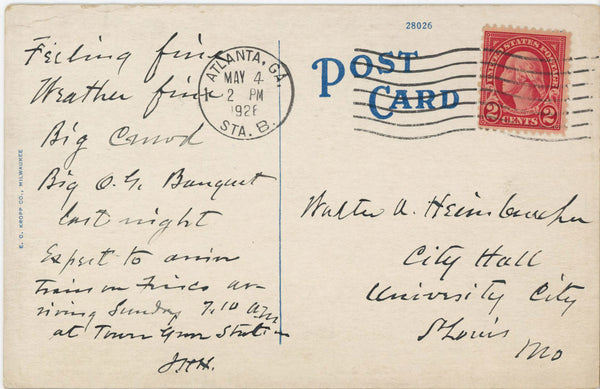 28026
POST CARD
ATLANTA, GA.
MAY 4
2 PM
1926
STA. B.
UNITED STATES POSTAGE
2 CENTS 2
Feeling fine
Weather fine
Big Crowd
Big O. G. Banquet
last night
Expect to arrive
train on Frisco ar-
riving Sunday 7.10 am
at Town Grove Station
J.H.H.
Walter A. Heimbuecher
City Hall
University City
St Louis
Mo
E. C. KROPP CO., MILWAUKEE